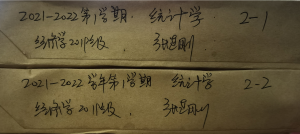 2021-2022第1学期 统计学 2-1
经济学2019级
2021-2022学年第1学期 统计学 2-2
经济学2019级